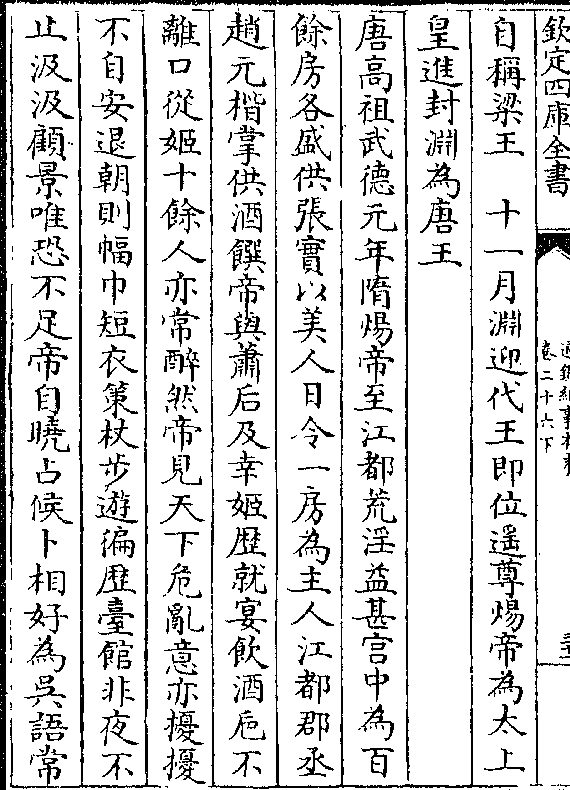 欽定四庫全書
卷二十六下
自稱梁王　十一月淵迎代王即位遥尊煬帝為太上
皇進封淵為唐王
唐高祖武德元年隋煬帝至江都荒淫益甚宫中為百
餘房各盛供張實以美人日令一房為主人江都郡丞
趙元楷掌供酒饌帝與蕭后及幸姬歴就宴飲酒巵不
離口從姬十餘人亦常醉然帝見天下危亂意亦擾擾
不自安退朝則幅巾短衣策杖步遊徧歴臺館非夜不
止汲汲顧景唯恐不足帝自曉占候卜相好為吳語常